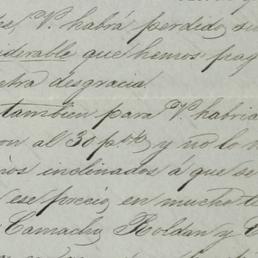 V. habrá perdido su
siderable que hemos frag
tra desgracia.
tambien para V. habria
on al 30 p% y no lo
os inclinados á que se
ese precio, en mucho
Camacho Roldan y